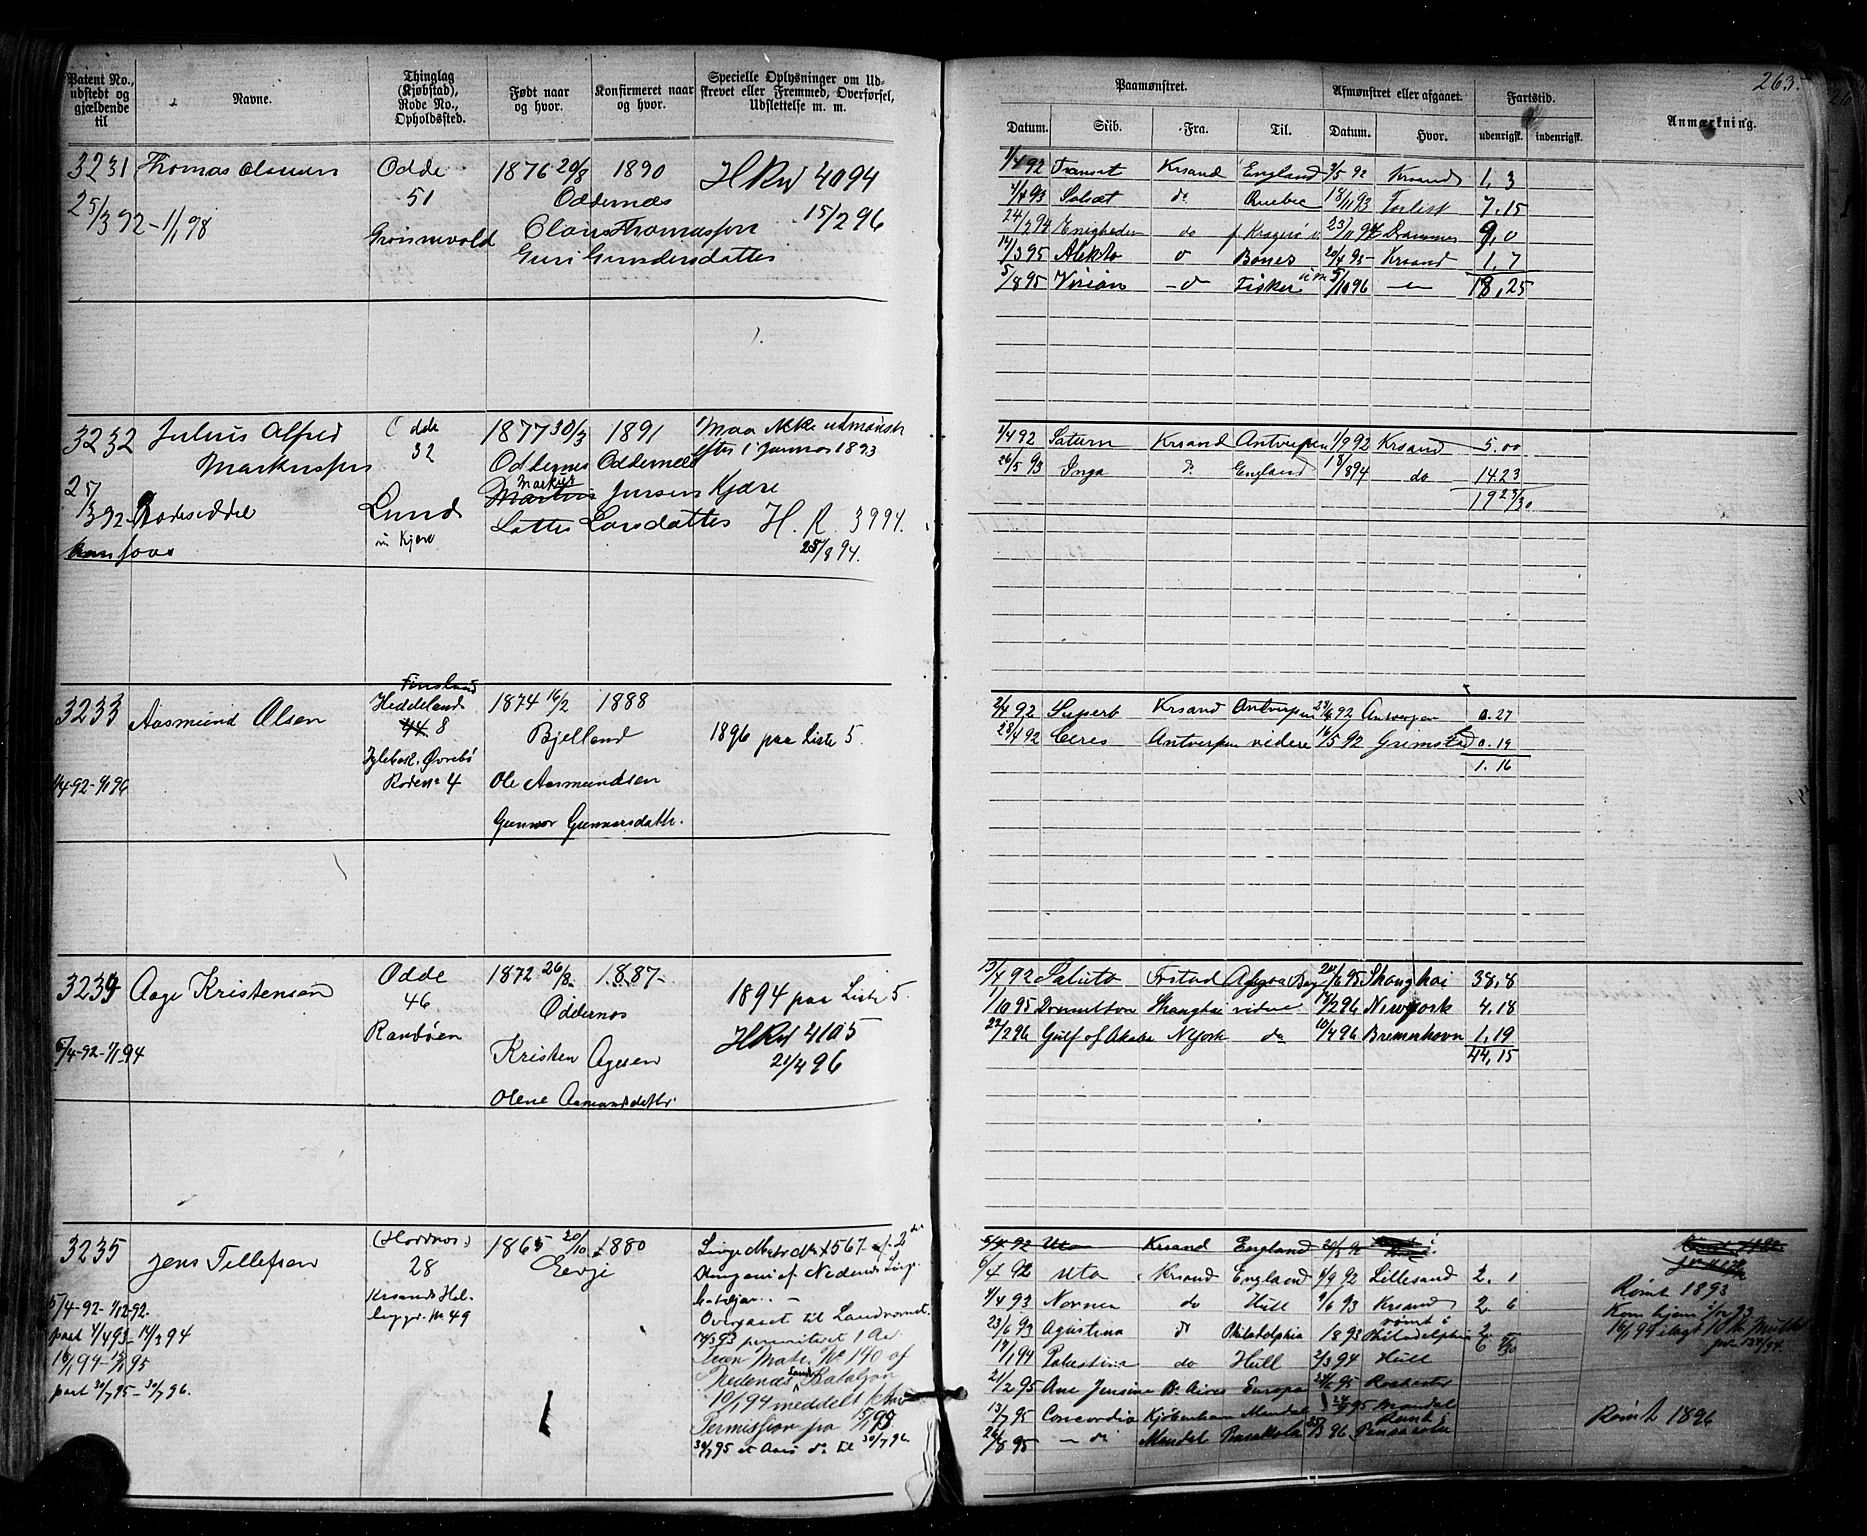 263.
Patent No., udstedt og gjældende til
Navne.
Thinglag (Kjøbstad), Rode No., Opholdssted.
Født naar og hvor.
Konfirmeret naar og hvor.
Specielle Oplysninger om Udskrevet eller Fremmed, Overførsel, Udslettelse m. m.
Paamønstret.
Afmønstret eller afgaaet.
Fartstid.
Anmærkning.
Datum. Skib. Fra. Til. Datum. Hvor. udenrigsk. indenrigsk.
3231 Thomas Olausen Odde 1876 20/8 1890 HRul 4094
51 Oddernæs 15/2 96
25/3 92 - 1/1 98 Grimsvold Olaus Thomassen
Guri Gundersdatter
1/4 92 Transit Krsand England 3/5 92 Krsand 1,3
4/4 93 Solid do Quebec 18/11 93 Forlist 7.15
24/2 94 Enigheden do Kragerø 23/11 94 Drammen 9,0
14/3 95 Alekto do Bones 20/4 95 Krsand 1,7
5/8 95 Vision do Fiskeri 5/10 96 18,25
3232 Julius Alfred Odde 1877 30/3 1891 Maa ikke udmønstr
Markussen 32 Oddernes Oddernæs efter 1 Januar 1893
25/3 92 Rodeseddel Lund Markus Jensen Kjære
kun foros m Kjere Lotte Larsdatter H. R 3994.
25/8 94.
1/4 92 Saturn Krsand Antverpen 1/9 92 Krsand 5.00
26/5 93 Inga do England 18/8 94 do 14.23
19 23/30
3233 Aasmund Olsen Finsland 1874 16/2 1888
Heddeland
44. 8 Bjelland 1896 paa Liste 5.
Øvrebø
1/4-92-1/1 96 Rodens 4 Ole Aasmundsen
Gunvor Gunnarsdatter.
2/4 92 Superb Krsand Antverpen 28/4 92 Antverpen 0.27
28/4 92 Ceres Antverpen videre 16/5 92 Grimstad 0.19
1.16
3234 Aage Kristensen Odde 1872 26/8 1887
46 Oddernes 1894 paa Liste 5.
Randøen HRul 4105
5/4-92-1/1 94 Kristen Agesen 21/4 96
Olene Aamundsdatter
13/4 92 Saluto Frstad Algoa Bay 20/6 95 Shanghai 38,8
1/10 95 Drumeltan Shanghai videre 19/2 96 Newyork 4,18
22/2 96 Gulf of Akaba NYork do 10/4 96 Bremerhavn 1,19
44,15
3235 Jens Tellefsen (Hordnes) 1865 20/10 1880
28 Evje
Krsands Hel-
liggr. No 49
5/4-92-1/12-92.
paat 4/4 93-14/3 94
16/1 94-15/1 95
paat 30/7 95-30/7 96.
Linje Matr. No 1567 af 2den
Kompani af Nedenæs Linje
bataljon.
Overgaaet til Landværnet.
14/3 93 permitteret 1 Aar
Matr. No 190 af
Nedenæs Landv. Bataljon
10/1 94 meddelt 1 Aars
Permission fra 15/1 95
30/7 95 et Aars do til 30/7 96.
5/4 92 Uto Krsand England
6/4 92 Uto Krsand England 6/9 92 Lillesand 2. 1
4/4 93 Nornen do Hull 9/6 93 Krsand 2 6
23/6 93 Agustina do Philadelphia 18 93 rømt i Philadelphia 2.
17/1 94 Palestina do Hull 2/3 94 Hull
21/2 95 Ane Jensine B. Aires Europa 24/6 95 Rochester
13/7 95 Concordia Kjøbenhavn Mandal 24/7 95 Mandal
26/8 95 do Mandal Pensakola 96 Rømt i Pensacola
Rømt 1893
Kom hjem
Rømt 1896